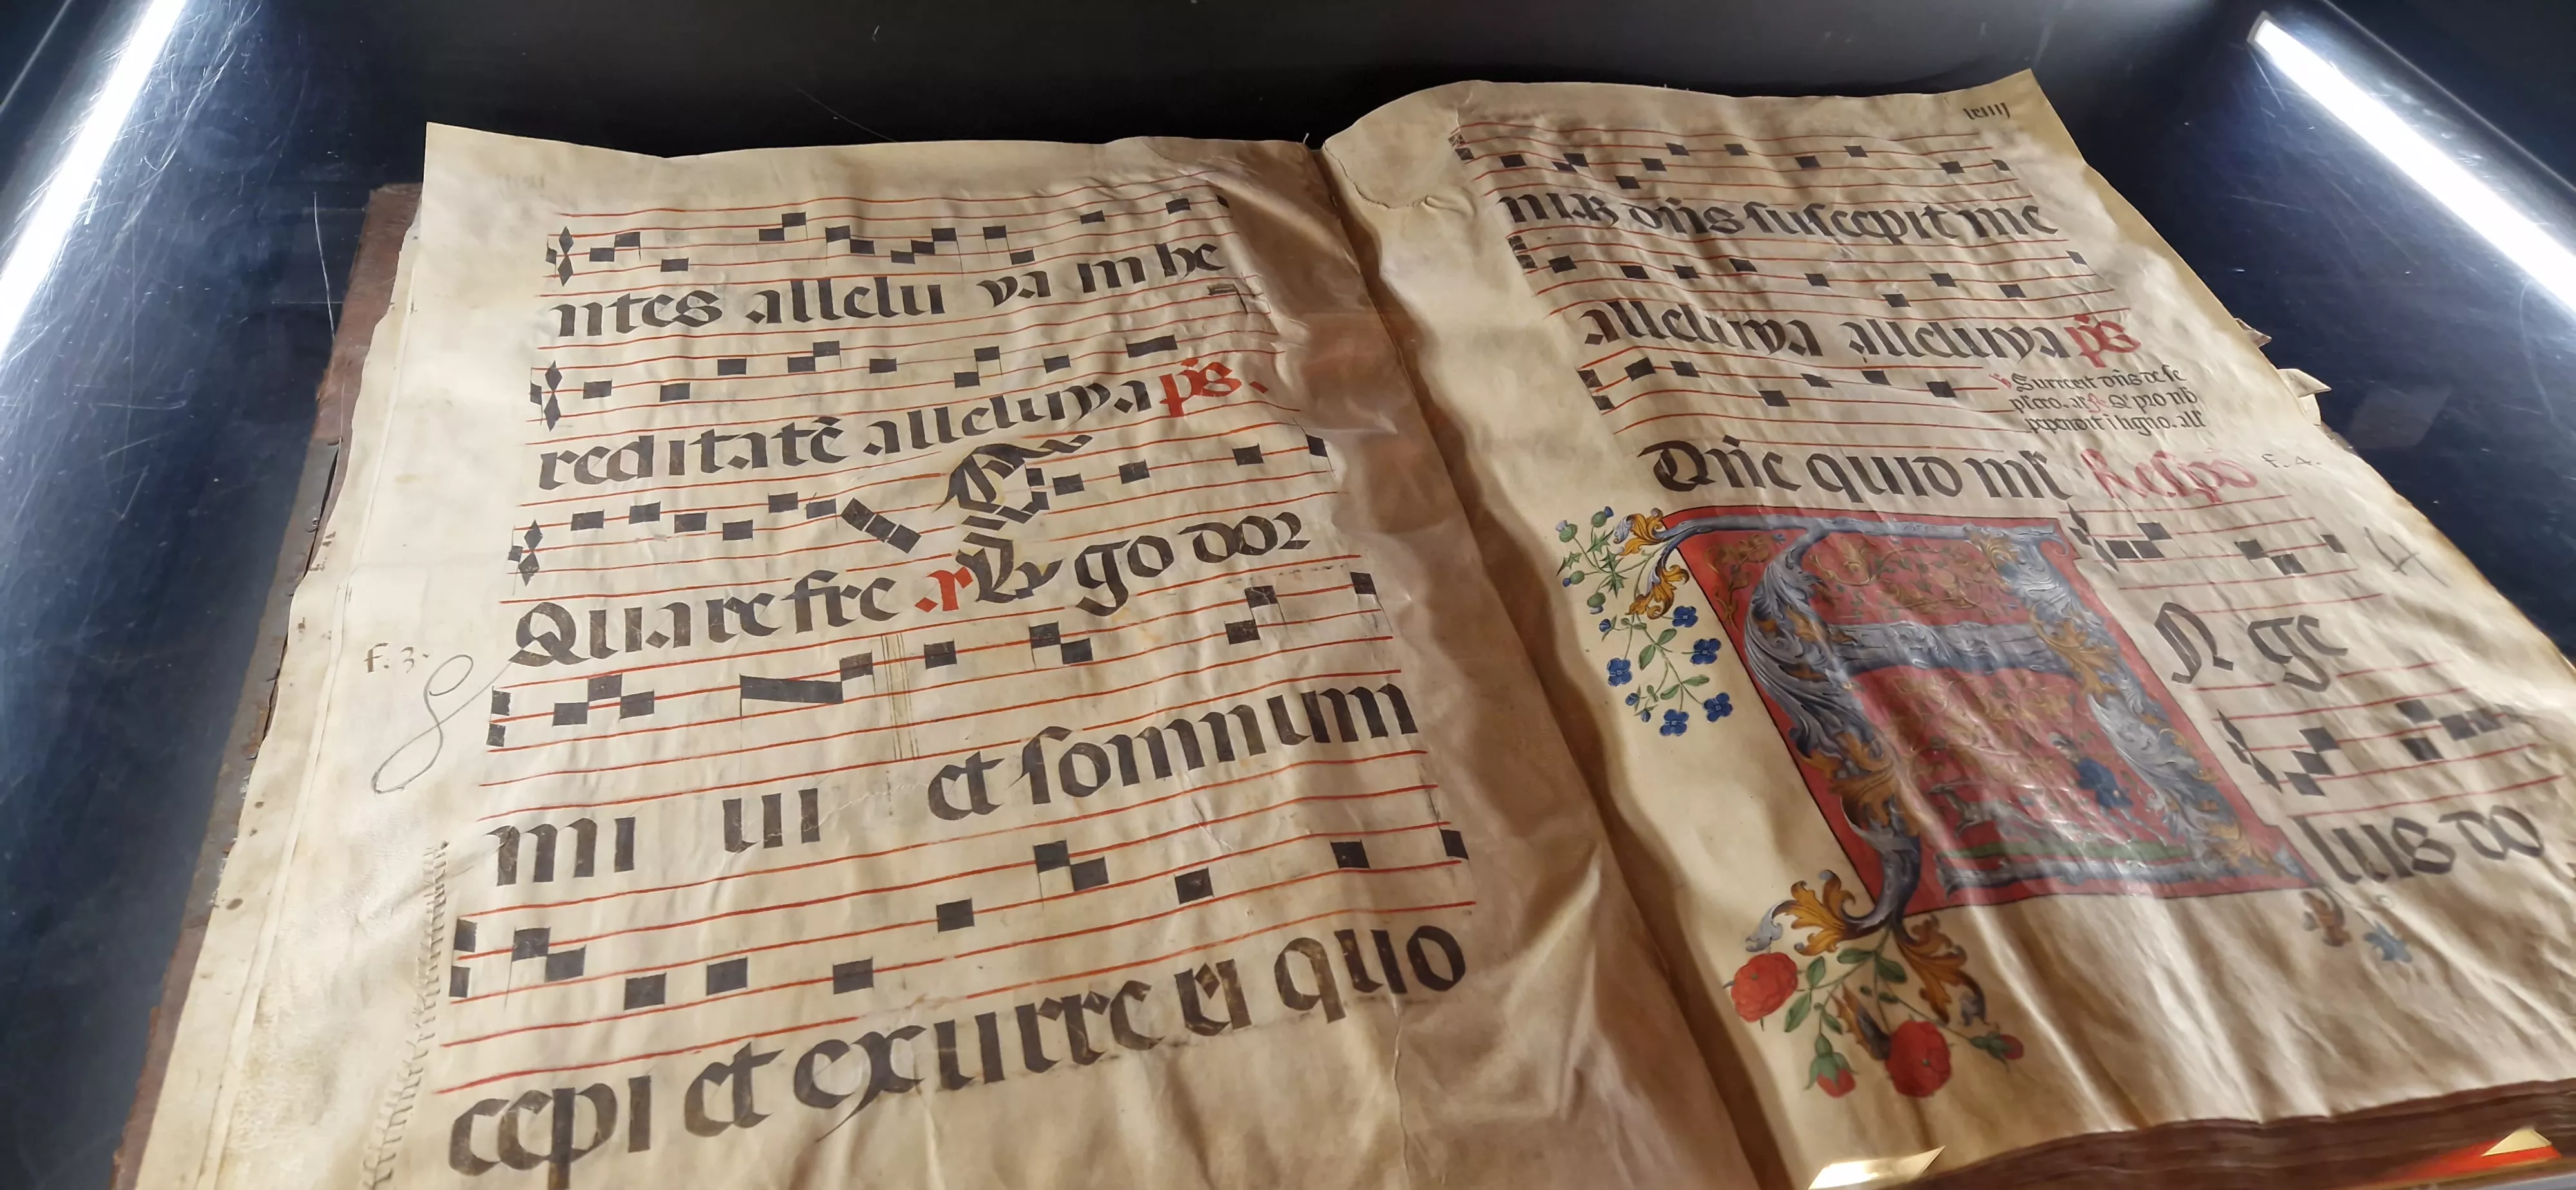 ntes allelu ya in he
reditatē alleluya ps.
Quare fre .r Ego dor
f. 3.
mi ui et somnum
cepi et exurre xi quo
lxiiii
niaȝ dn̄s suscepit me
alleluya alleluya ps
Surrexit dn̄s de se
pulcro. all. Qui pro nb
pependit ī ligno. all
Dn̄e quid ml't Respō f. 4.
A N ge
lus do